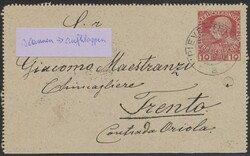 S.
scannen → aufklappen
Giacomo Maestranzi
Chincagliere
Trento
Contrada Oriola.
10 10